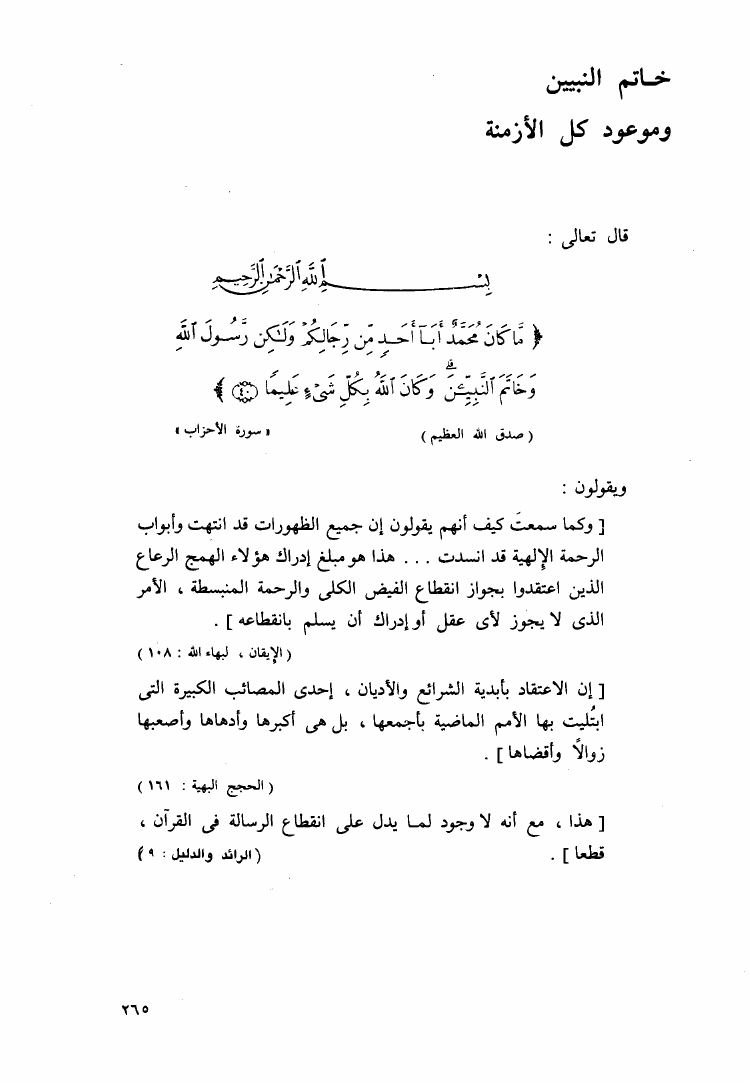 خاتم النبيين
وموعود كل الأزمنة
قال تعالى :
بِسْمِ اللَّهِ الرَّحْمَٰنِ الرَّحِيمِ
﴿ مَّا كَانَ مُحَمَّدٌ أَبَآ أَحَدٍ مِّن رِّجَالِكُمْ وَلَٰكِن رَّسُولَ ٱللَّهِ
وَخَاتَمَ ٱلنَّبِيِّـۧنَۗ وَكَانَ ٱللَّهُ بِكُلِّ شَىْءٍ عَلِيمًا ٤٠ ﴾
( صدق الله العظيم ) « سورة الأحزاب »
ويقولون :
[ وكما سمعتَ كيف أنهم يقولون إن جميع الظهورات قد انتهت وأبواب
الرحمة الإلهية قد انسدت ... هذا هو مبلغ إدراك هؤلاء الهمج الرعاع
الذين اعتقدوا بجواز انقطاع الفيض الكلى والرحمة المنبسطة ، الأمر
الذى لا يجوز لأى عقل أو إدراك أن يسلم بانقطاعه ] .
( الإيقان ، لبهاء الله : ١٠٨ )
[ إن الاعتقاد بأبدية الشرائع والأديان ، إحدى المصائب الكبيرة التى
ابتُليت بها الأمم الماضية بأجمعها ، بل هى أكبرها وأدهاها وأصعبها
زوالاً وأقضاها ] .
( الحجج البهية : ١٦١ )
[ هذا ، مع أنه لا وجود لما يدل على انقطاع الرسالة فى القرآن ،
قطعا ] . ( الرائد والدليل : ٩ )
٢٦٥